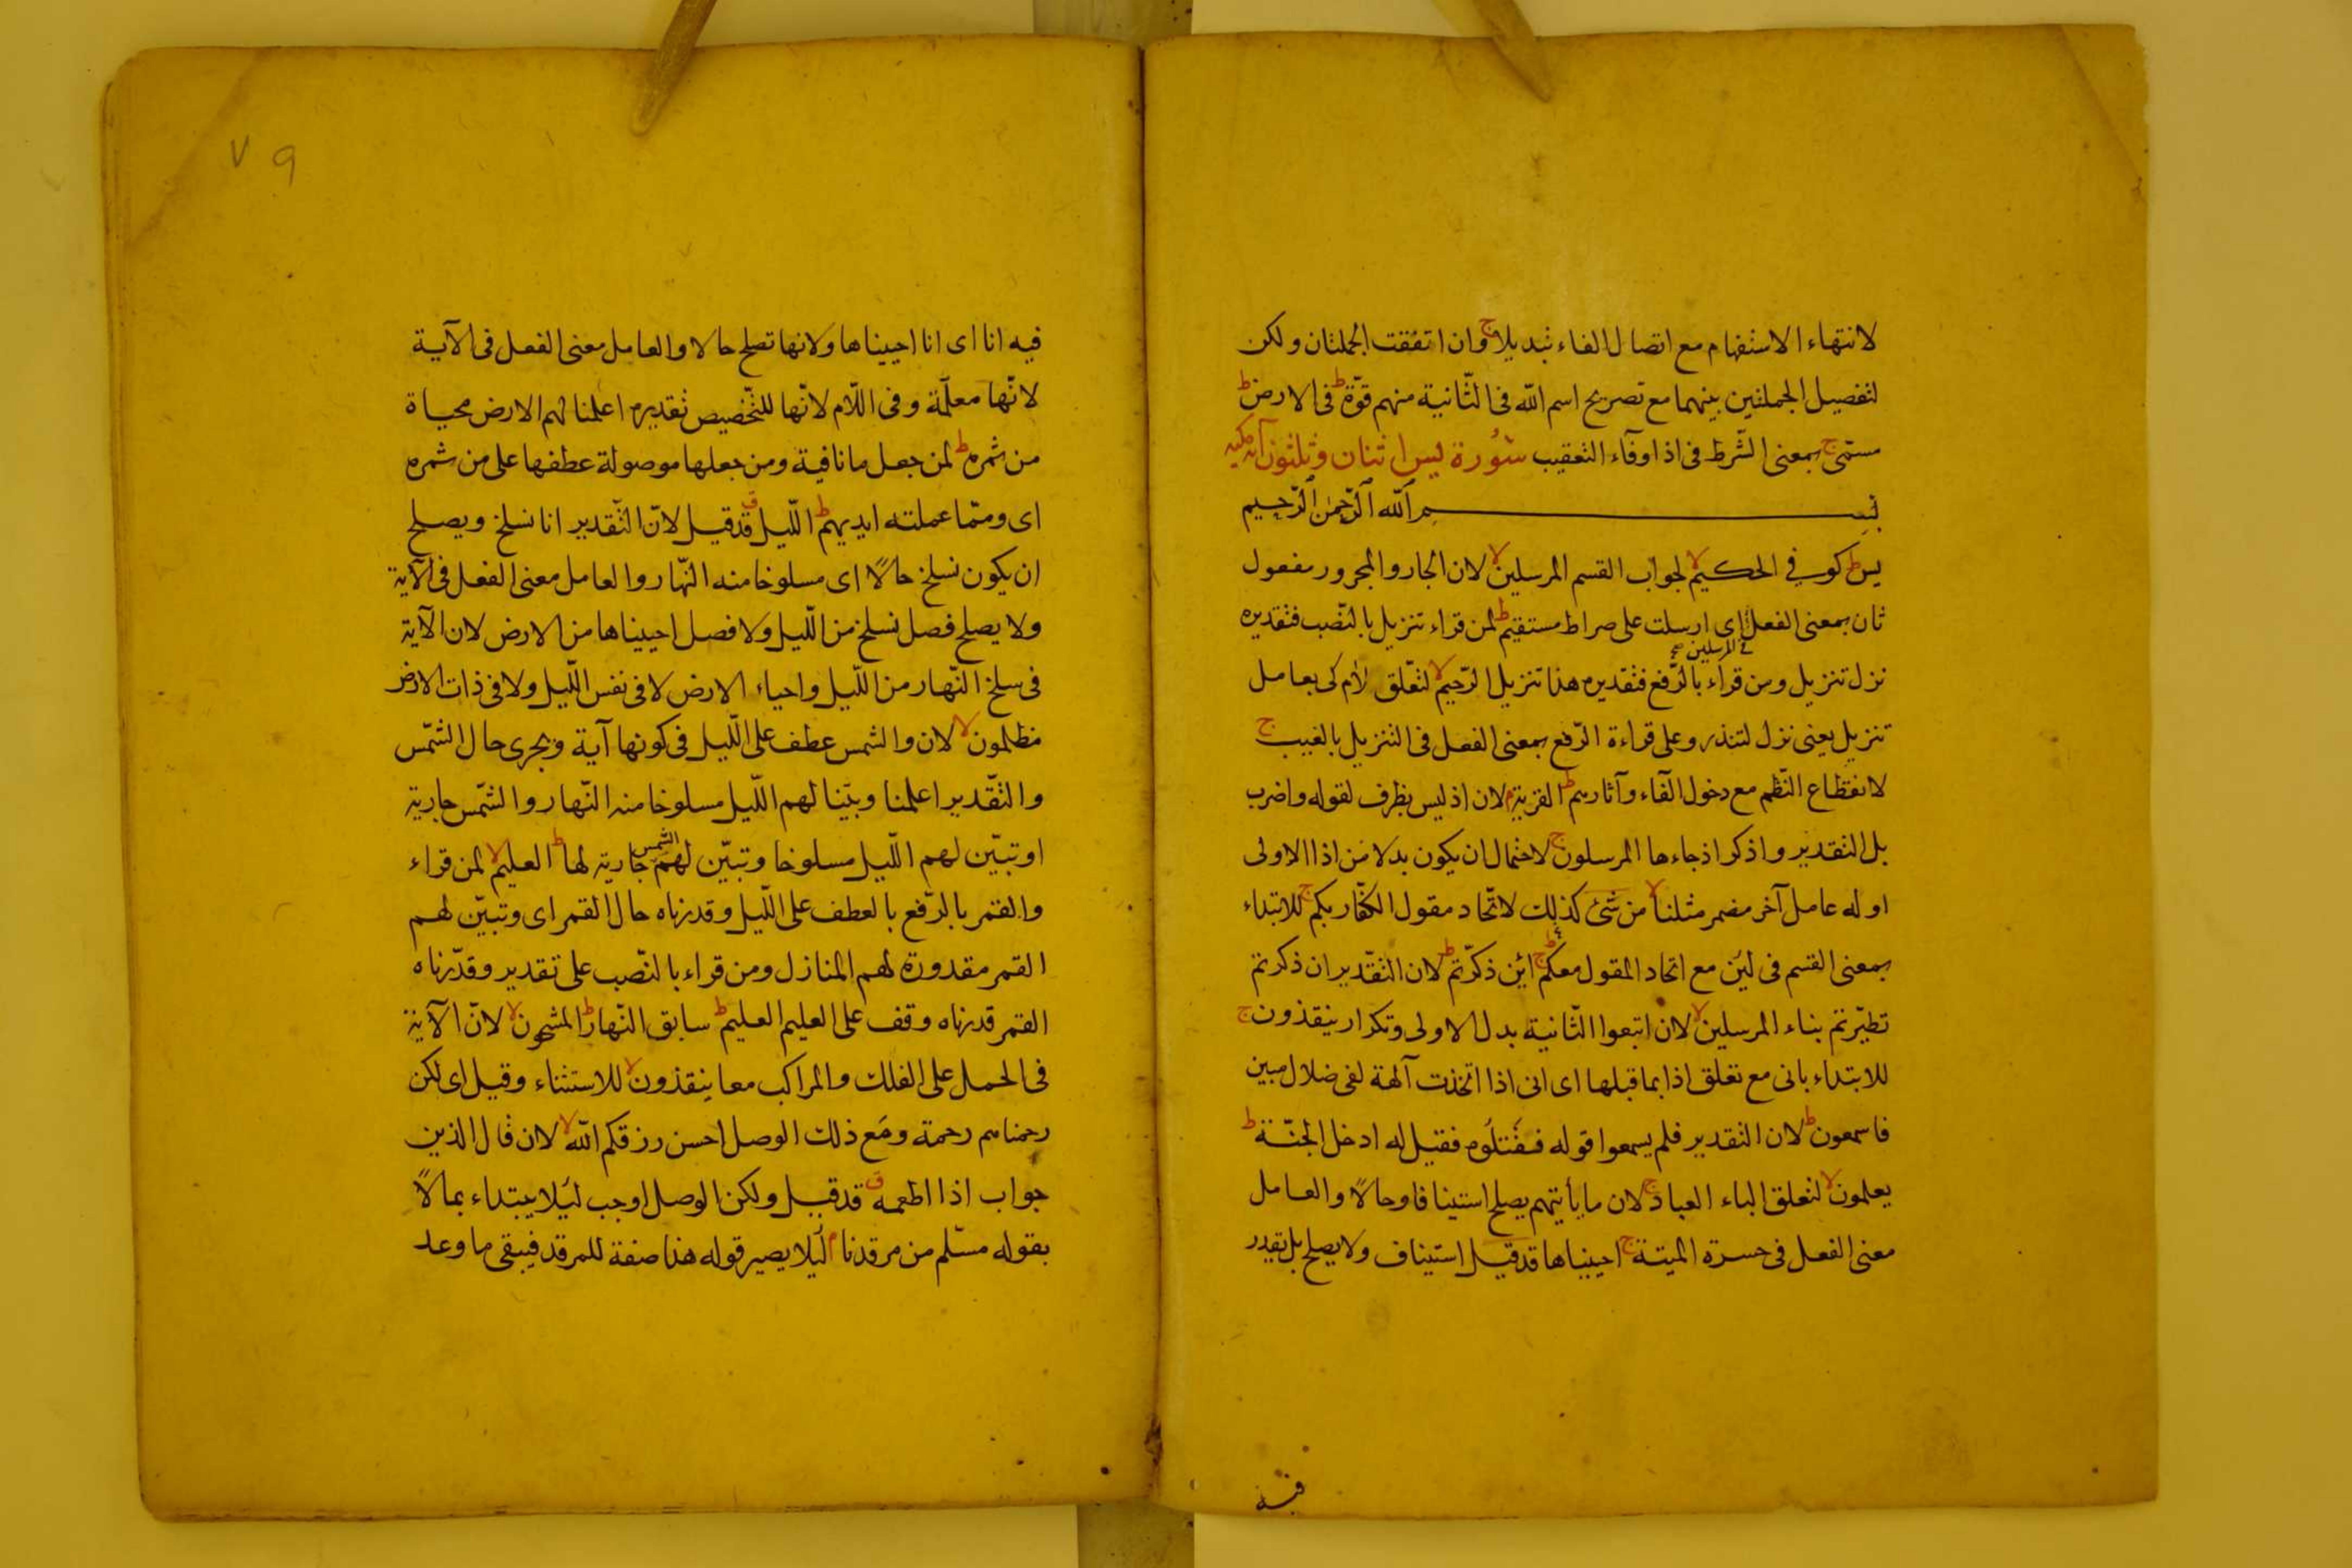 لانتهاء الاستفهام مع اتصال الفاء تبديلا ج وان اتفقت الجملتان ولكن
لتفصيل الجملتين بينهما مع تصريح اسم الله فى الثّانية منهم قوّة ط فى الارض ط
مسمّى ج بمعنى الشّرط فى اذا وفآء التعقيب سُورة يس اثنان وثلثون آية مكيه
بسم الله الرّحمن الرّحيم
يس ط كوفي الحكيم لا لجواب القسم المرسلين لا لان الجار والمجرور مفعول
ثان بمعنى الفعل فى المرسلين اى ارسلت على صراط مستقيم ط لمن قراء تنزيل بالنّصب فتقديره
نزل تنزيل ومن قراء بالرّفع فتقديره هذا تنزيل الرّحيم لا لتعّلق لام كى بعامل
تنزيل يعنى نزل لتنذر وعلى قراءة الرّفع بمعنى الفعل فى التنزيل بالغيب ج
لانقطاع النّظم مع دخول الفاء وآثارهم ط القرية م لان اذ ليس بظرف لقوله واضرب
بل التقدير واذكر اذ جاءها المرسلون ج لاحتمال ان يكون بدلا من اذا الاولى
او له عامل آخر مضمر مثلنا لا من شئ كذلك لاتّحاد مقول الكفّار بكم ج للابتداء
بمعنى القسم فى لئن مع اتحاد المقول معكم ط ج ائن ذكّرتم ط لان التقدير ان ذكرتم
تطيّرتم بناء المرسلين لا لان اتبعوا الثّانية بدل الاولى وتكرار ينقذون ج
للابتداء بانى مع تعلق اذا بما قبلها اى انى اذا اتخذت آلهة لفى ضلال مبين
فاسمعون ط لان التقدير فلم يسمعوا قوله فقتلوه فقيل له ادخل الجنّة ط
يعلمون لا لتعلق الباء العباد ج لان ما يأتيهم يصلح استينافا وحالاً والعامل
معنى الفعل فى حسرة الميتة ج احييناها قد قيل استيناف ولا يصلح بل يقدر
فيه
٧٩
فيه انا اى انا احييناها ولانها تصلح حالا والعامل معنى الفعل فى الآية
لانّها معلّمة وفى اللّام لانّها للتّخصيص تقديره اعلمنا لهم الارض محياة
من ثمره ط لمن جعل ما نافية ومن جعلها موصولة عطفها على من ثمره
اى وممّا عملته ايديهم ط اللّيل ق قد قيل لانّ التّقدير انا نسلخ ويصلح
ان يكون نسلخ حالاً اى مسلوخا منه النّهار والعامل معنى الفعل فى الآية
ولا يصلح فصل نسلخ من اللّيل ولا فصل احييناها من الارض لان الآية
فى سلخ النّهار من اللّيل واحياء الارض لا فى نفس اللّيل ولا فى ذات الارض
مظلمون لا لان والشمس عطف على اللّيل فى كونها آية وتجرى حال الشّمس
والتّقدير اعلمنا وبيّنا لهم اللّيل مسلوخا منه النّهار والشّمس جارية
او تبيّن لهم اللّيل مسلوخا وتبيّن لهم الشمس جارية لها ط العليم لا لمن قراء
والقمر بالرّفع بالعطف على اللّيل وقدرناه حال القمر اى وتبيّن لهم
القمر مقدورة لهم المنازل ومن قراء بالنّصب على تقدير وقدّرناه
القمر قدرناه وقف على العليم العليم ط سابق النّهار ط المشحون لا لانّ الآية
فى الحمل على الفلك والمراكب معا ينقذون لا للاستثناء وقيل اى لكن
رحمناهم رحمة ومع ذلك الوصل احسن رزقكم الله لا لان قال الذين
جواب اذا اطعمه ق قد قيل ولكن الوصل اوجب لئلا يبتداء بمالاً
بقوله مسّلم من مرقدنا م لئلا يصير قوله هذا صفة للمرقد فيبقى ما وعد